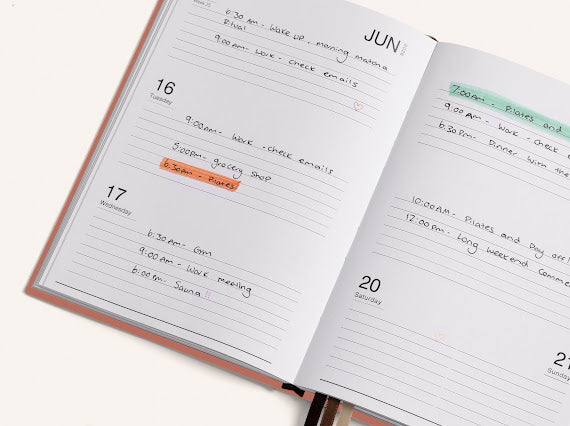 Week 25
JUN
6:30 AM - Wake up, morning matcha
Ritual
9:00AM - Work - check emails
16
Tuesday
9:00AM - Work - check emails
5:00PM - grocery shop
6:30PM - Pilates
17
Wednesday
6:30AM - Gym
9:00AM - Work meeting
6:00PM - Sauna !!
7:00AM - Pilates and
9:00 AM - Work - check
6:30PM - Dinner with the
10:00AM - Pilates and Day off!
12:00PM - Long weekend comme
20
Saturday
21
Sunday